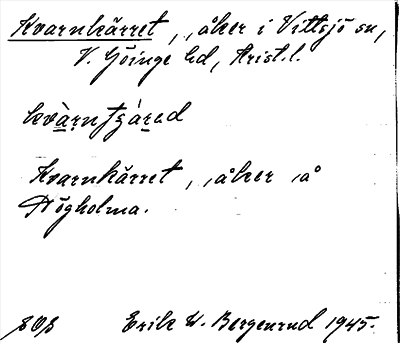 Kvarnkärret, åker i Vittsjö sn,
V. Göinge hd, Krist. l.
Kvarnkärret, åker å
Högholma.
Erik W. Bergenrud 1945.